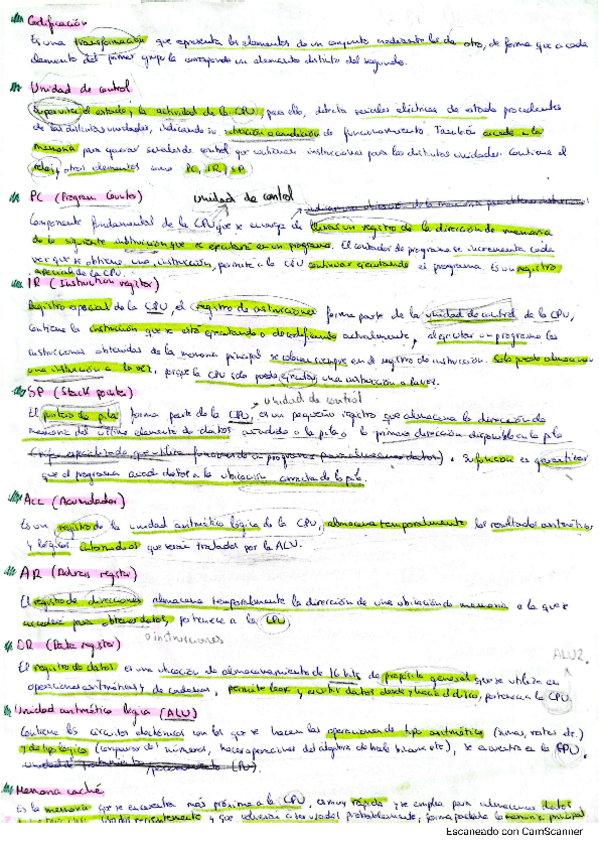 Codificación
Es una transformación que representa los elementos de un conjunto mediante los de otro, de forma que a cada
elemento del primer grupo le corresponde un elemento distinto del segundo.
Unidad de control
Supervisa el estado y la actividad de la CPU, para ello, detecta señales eléctricas de estado procedentes
de las distintas unidades, indicando su situación o condición de funcionamiento. También accede a la
memoria para generar señales de control que contienen instrucciones para las distintas unidades. Contiene el
reloj, otros elementos como PC, IR, SP
PC (Program Counter) Unidad de control
Componente fundamental de la CPU que se encarga de llevar un registro de la dirección de memoria
de la siguiente instrucción que se ejecutará en un programa. El contador de programa se incrementa cada
vez que se obtiene una instrucción, permite a la CPU continuar ejecutando el programa. Es un registro
especial de la CPU.
IR (Instruction register)
Registro especial de la CPU, el registro de instrucciones forma parte de la unidad de control de la CPU,
contiene la instrucción que se está ejecutando o decodificando actualmente, al ejecutar un programa las
instrucciones obtenidas de la memoria principal se colocan siempre en el registro de instrucción. Solo puede almacenar
una instrucción a la vez, porque la CPU solo puede ejecutar una instrucción a la vez.
SP (Stack pointer) unidad de control
El puntero de pila forma parte de la CPU, es un pequeño registro que almacena la dirección de
memoria del último elemento de datos añadido a la pila, o la primera dirección disponible en la pila
. Su función es garantizar
que el programa acceda datos a la ubicación correcta de la pila.
ACC (Acumulador)
Es un registro de la unidad aritmético lógica de la CPU, almacena temporalmente los resultados aritméticos
y lógicos intermedios que serán tratados por la ALU.
AR (Address register)
El registro de direcciones almacena temporalmente la dirección de una ubicación de memoria a la que se
accederá para obtener datos, pertenece a la CPU
o instrucciones
DR (Data register)
ALU?
El registro de datos es una ubicación de almacenamiento de 16 bits de propósito general que se utiliza en
operaciones aritméticas y de cadenas, permite leer y escribir datos desde y hacia el disco, pertenece a la CPU.
Unidad aritmético lógica (ALU)
Contiene los circuitos electrónicos con los que se hacen las operaciones de tipo aritmético (sumas, restas etc.)
y de tipo lógico (comparar dos números, hacer operaciones del álgebra de boole binaria etc), se encuentra en la CPU.
Memoria caché
Es la memoria que se encuentra más próxima a la CPU, es muy rápida y se emplea para almacenar datos
usados recientemente y que volverán a ser usados probablemente, forma parte de la memoria principal
Escaneado con CamScanner